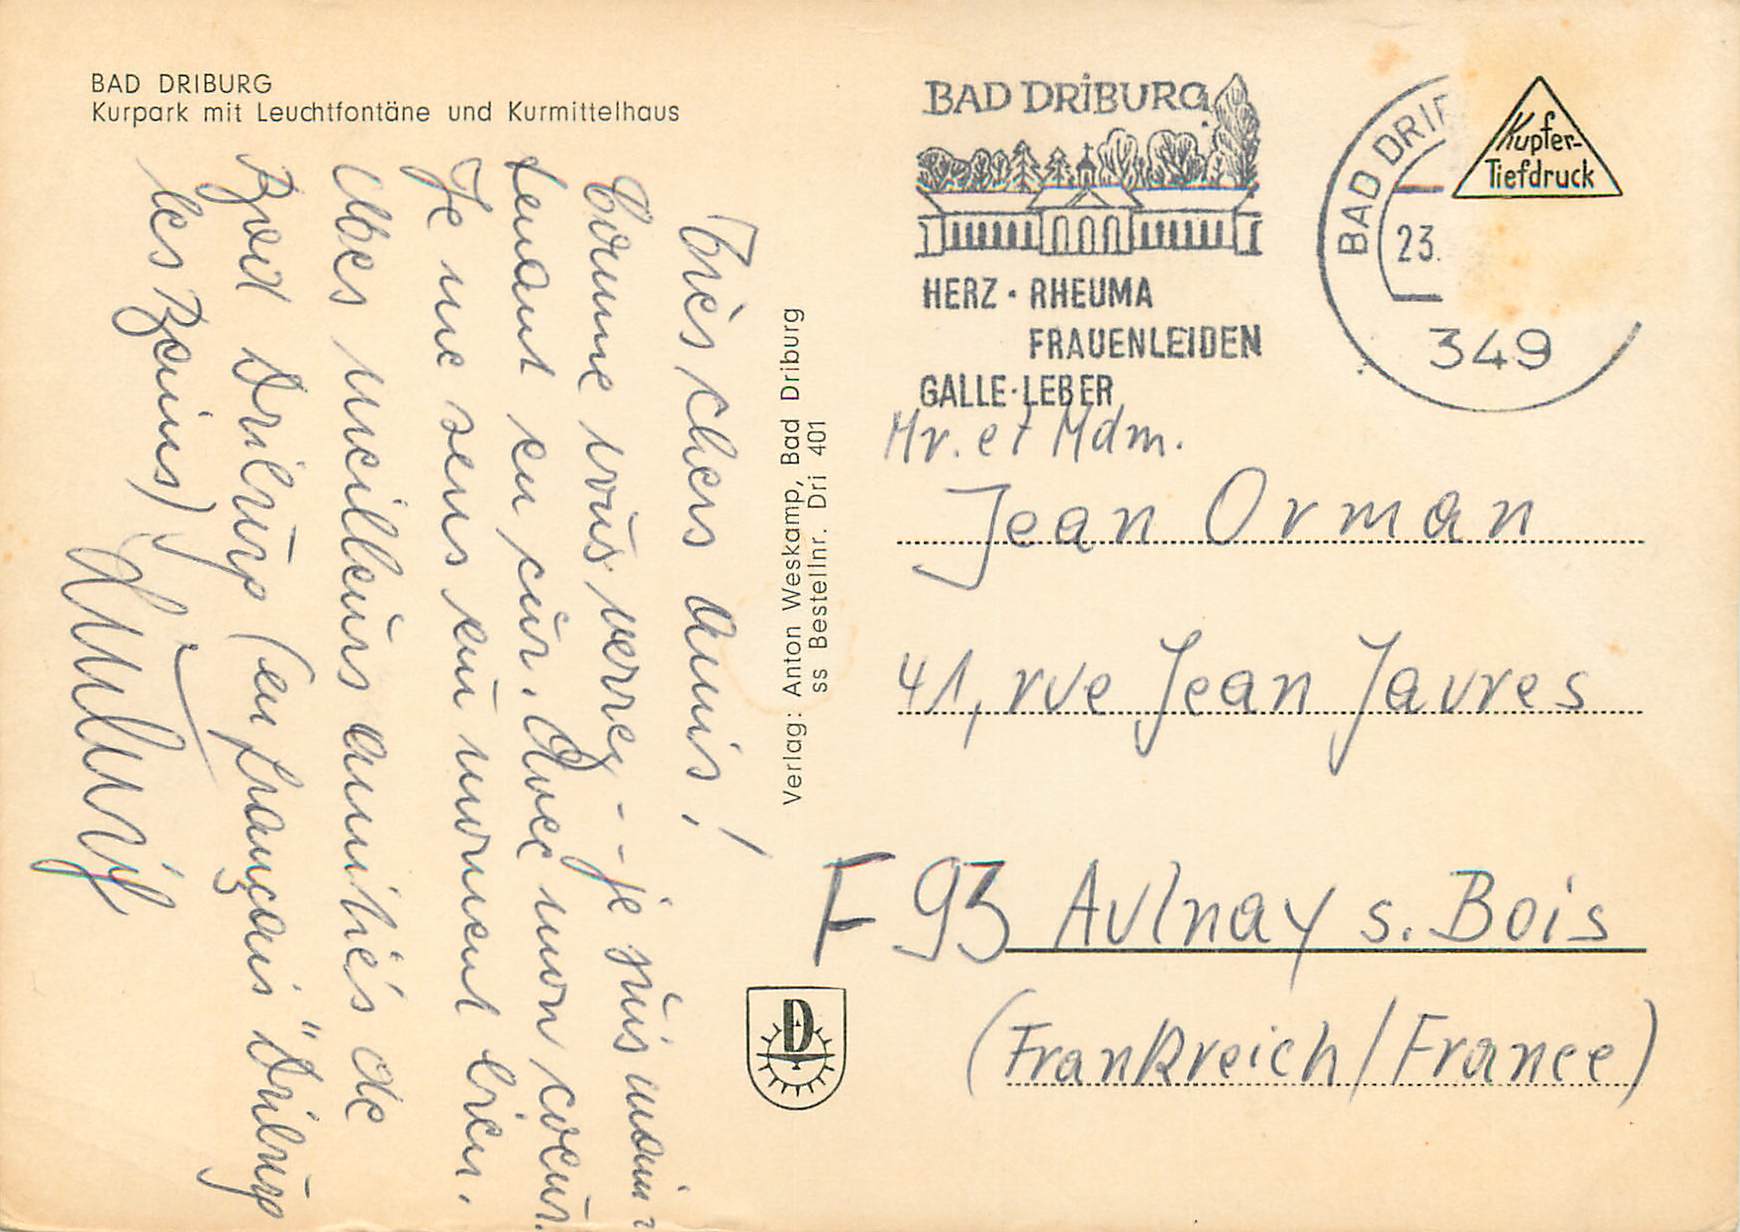 BAD DRIBURG
Kurpark mit Leuchtfontäne und Kurmittelhaus
Très chers amis!
Comme vous verrez - - je suis main-
tenant en cur. Avec mon coeur.
Je me sens au moment bien.
Mes meilleurs amitiés de
Bad Driburg (en français "Driburg
les Bains)
Verlag: Anton Weskamp, Bad Driburg
ss Bestellnr. Dri 401
D
BAD DRIBURG
HERZ · RHEUMA
FRAUENLEIDEN
GALLE · LEBER
BAD DRIB
23.
349
Kupfer-
Tiefdruck
Mr. et Mdm.
Jean Orman
41, rue Jean Jaures
F 93 Aulnay s. Bois
(Frankreich/France)